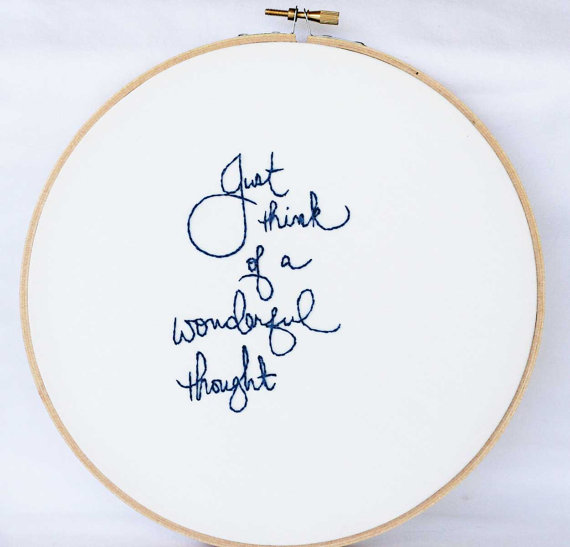 Just
think
of a
wonderful
thought